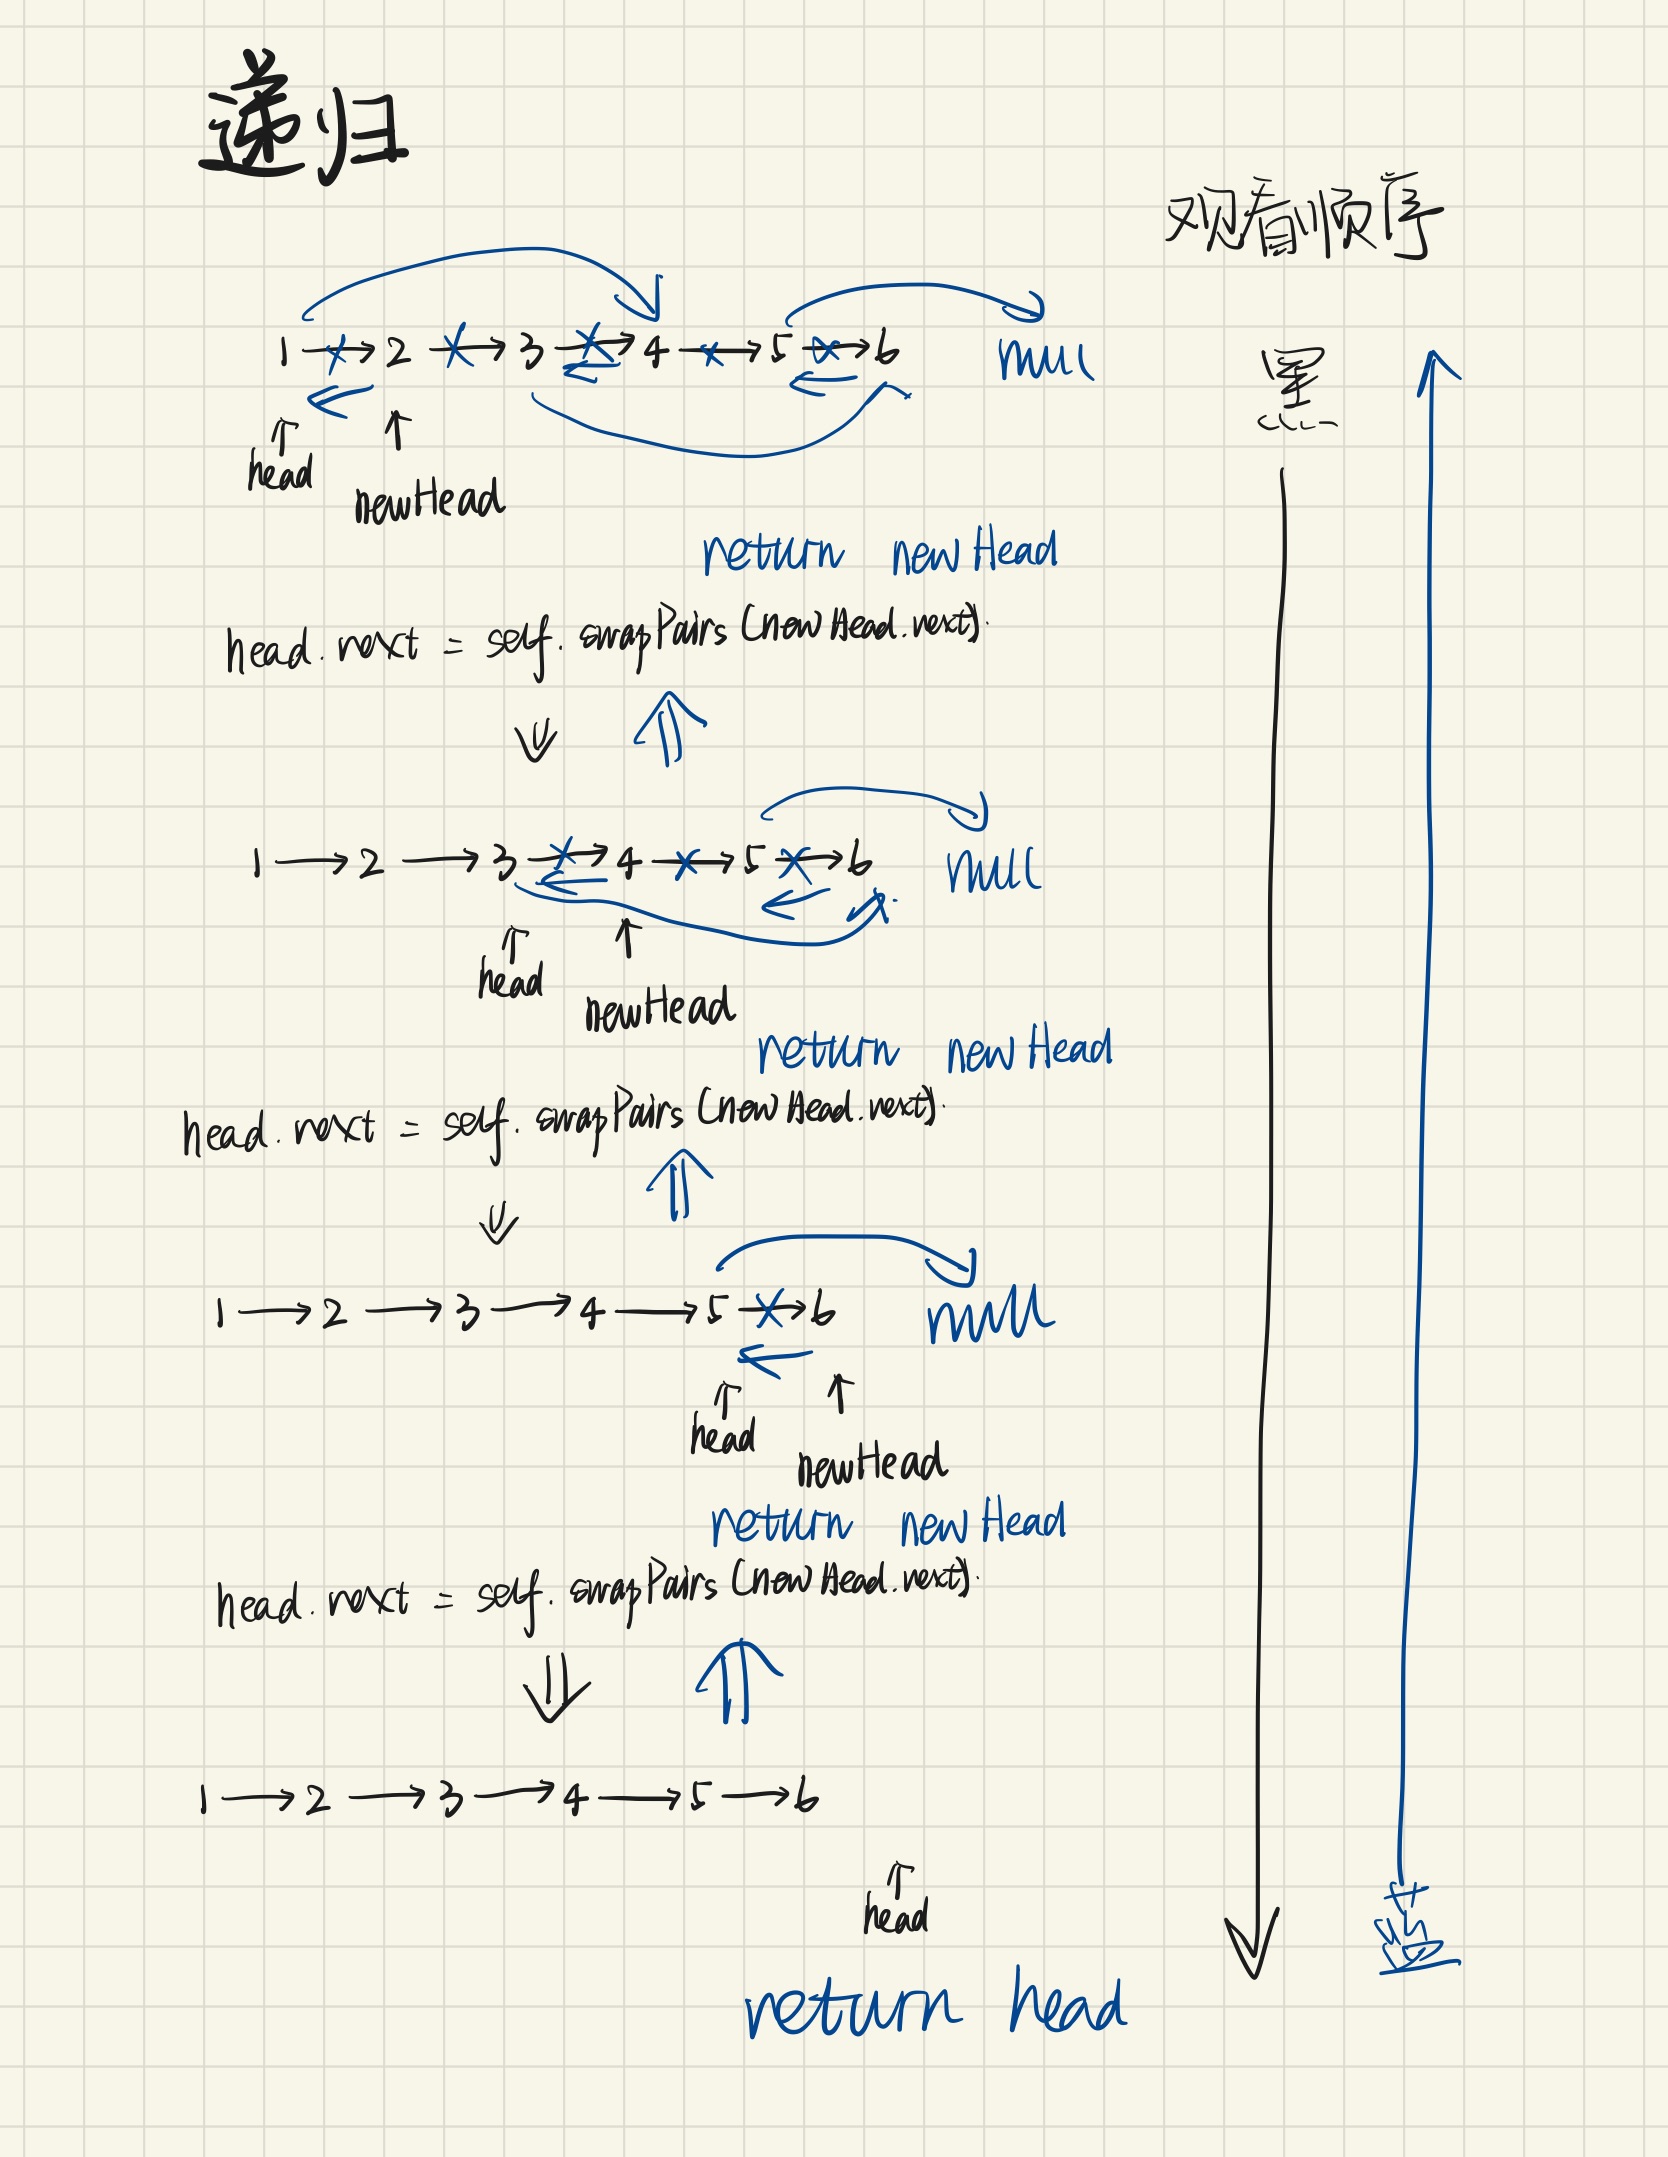 递归
观看顺序
1 → 2 → 3 → 4 → 5 → 6 null
黑
head
newHead
return newHead
head.next = self.swapPairs(newHead.next)
1 → 2 → 3 → 4 → 5 → 6 null
head
newHead
return newHead
head.next = self.swapPairs(newHead.next)
1 → 2 → 3 → 4 → 5 → 6 null
head
newHead
return newHead
head.next = self.swapPairs(newHead.next)
1 → 2 → 3 → 4 → 5 → 6
head
蓝
return head